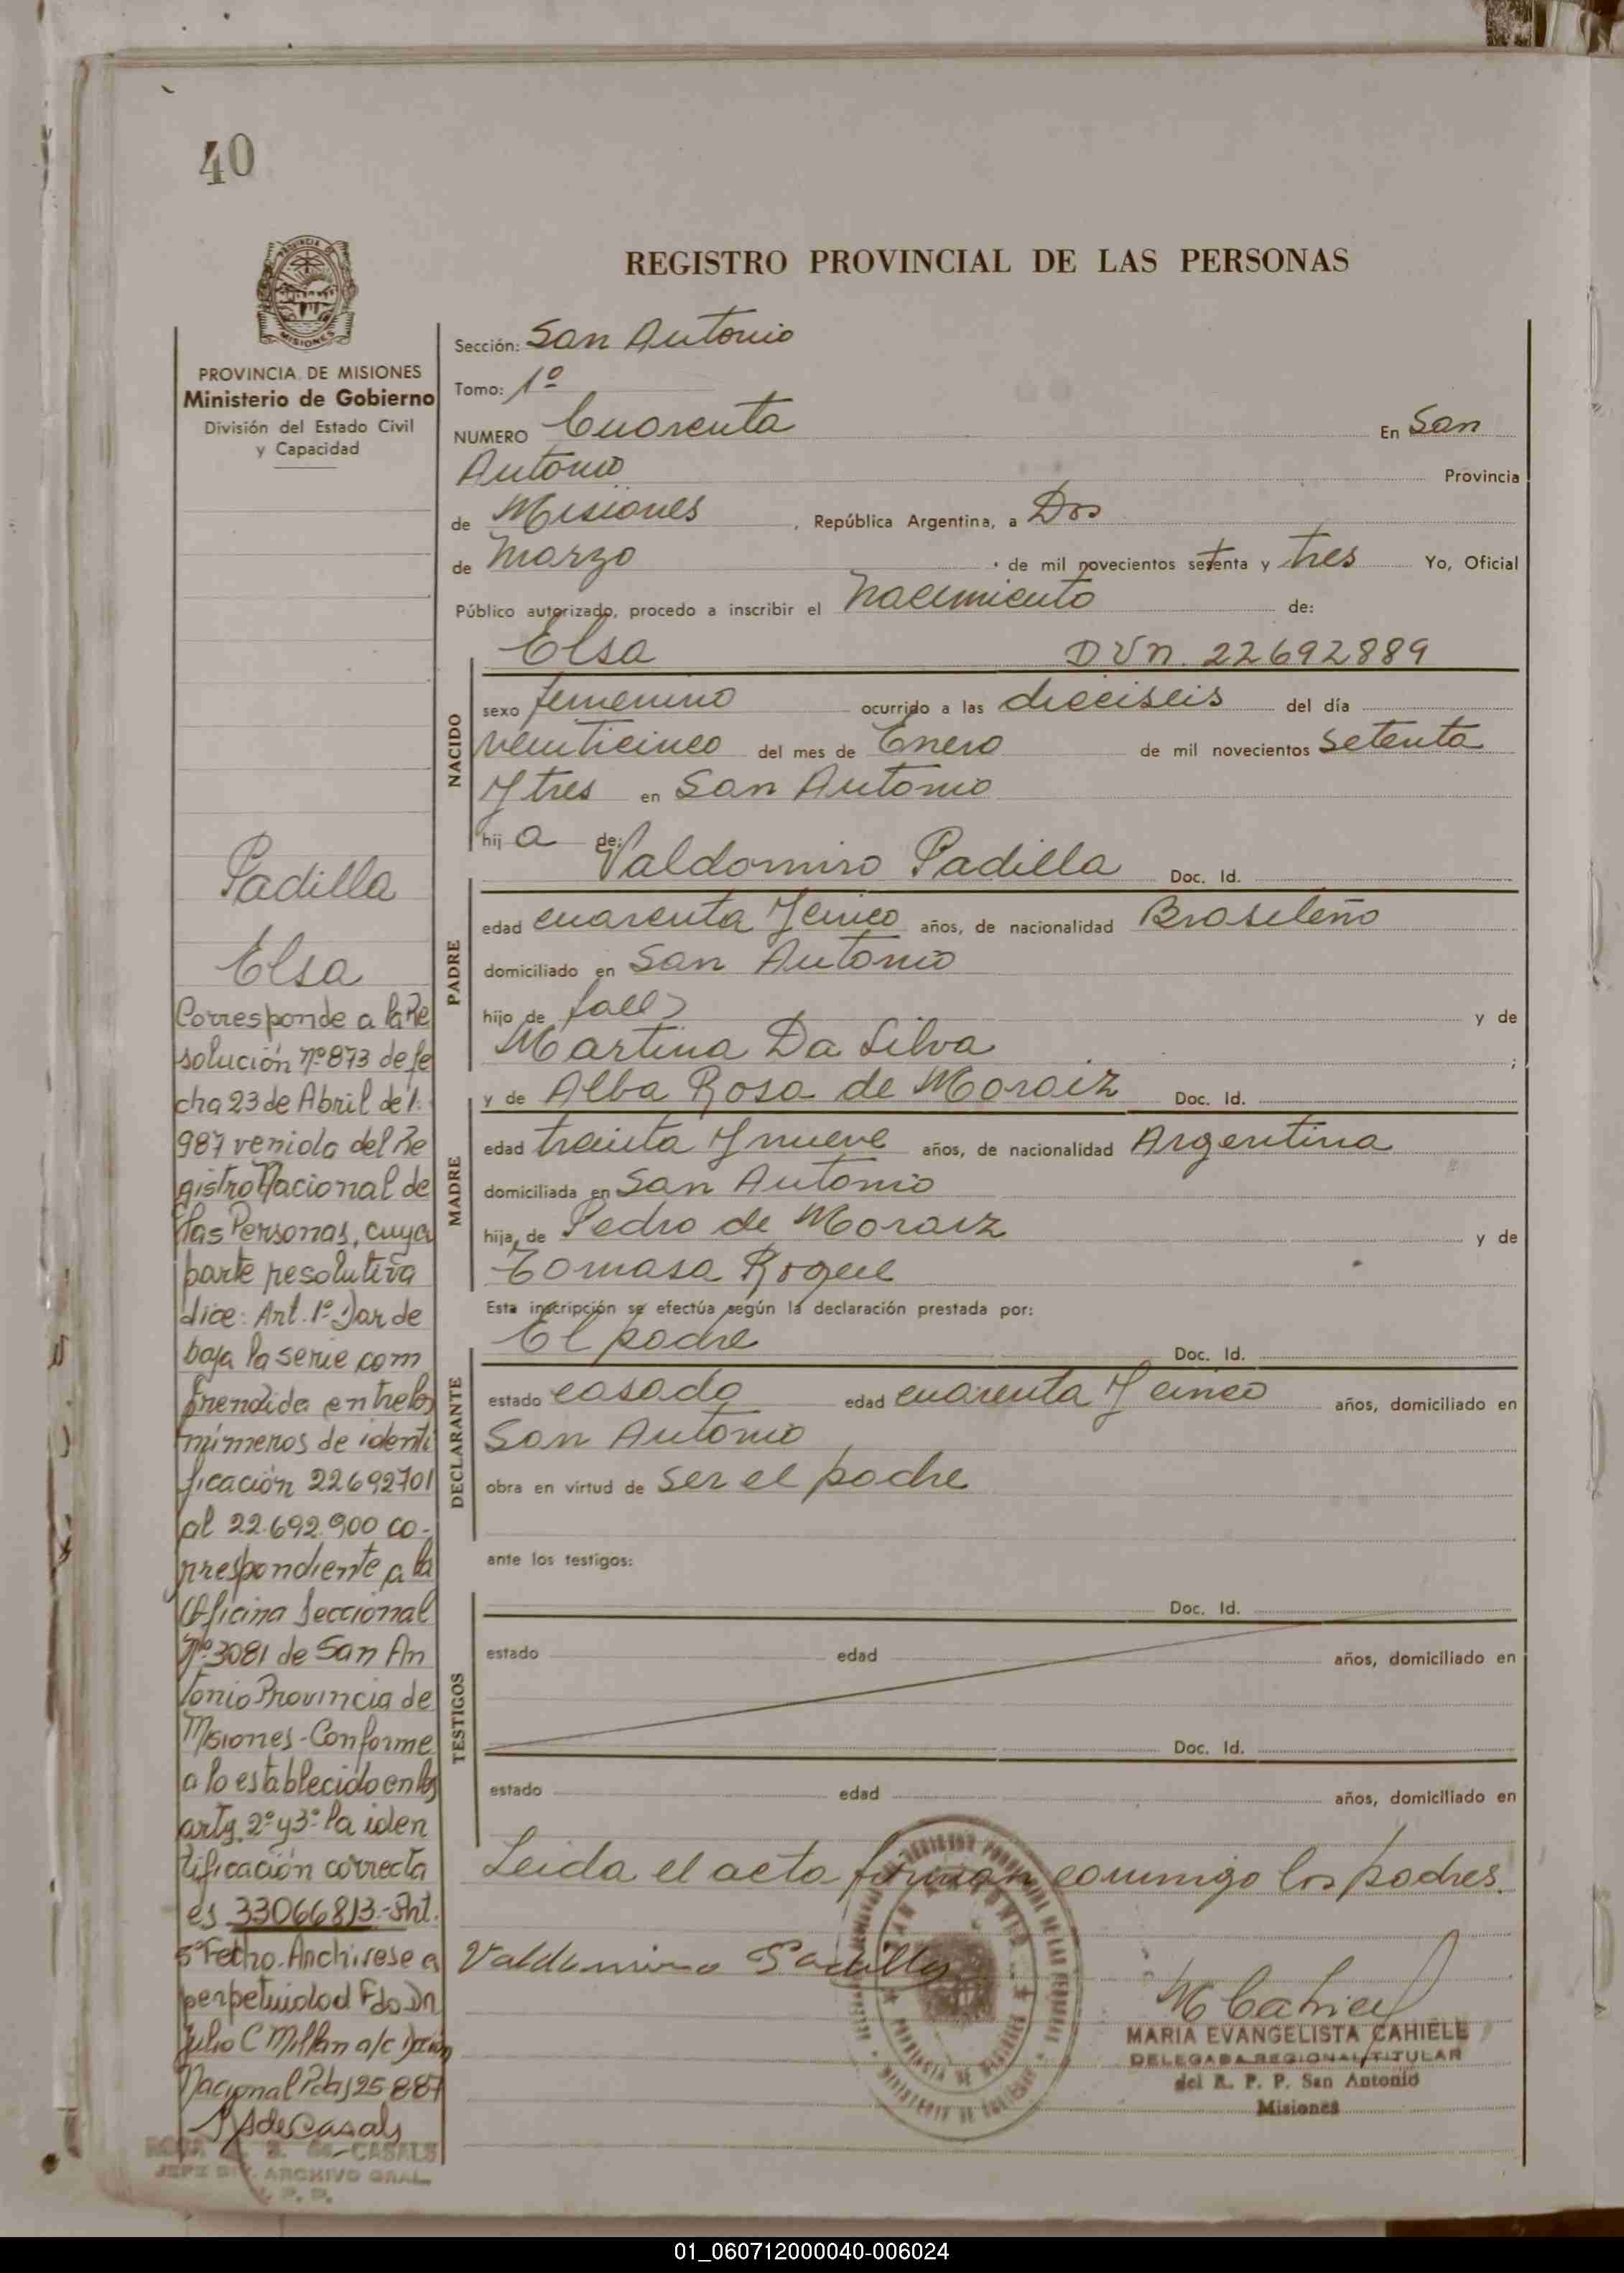 40
PROVINCIA DE MISIONES
Ministerio de Gobierno
División del Estado Civil
y Capacidad
REGISTRO PROVINCIAL DE LAS PERSONAS
Sección: San Antonio
Tomo: 1º
NUMERO Cuarenta En San
Antonio Provincia
de Misiones, República Argentina, a Dos
de Marzo de mil novecientos setenta y tres Yo, Oficial
Público autorizado, procedo a inscribir el Nacimiento de:
Elsa D.U.N. 22692889
NACIDO
sexo femenino ocurrido a las dieciseis del día
veinticinco del mes de Enero de mil novecientos setenta
y tres en San Antonio
hija de: Valdomiro Padilla Doc. Id.
PADRE
edad cuarenta y cinco años, de nacionalidad Brasileño
domiciliado en San Antonio
hijo de y de
Martina Da Silva ;
y de Alba Rosa de Moraiz Doc. Id.
MADRE
edad treinta y nueve años, de nacionalidad Argentina
domiciliada en San Antonio
hija de Pedro de Moraiz y de
Tomasa Roque
Esta inscripción se efectúa según la declaración prestada por:
El padre Doc. Id.
DECLARANTE
estado casado edad cuarenta y cinco años, domiciliado en
San Antonio
obra en virtud de ser el padre
ante los testigos:
Doc. Id.
TESTIGOS
estado edad años, domiciliado en
Doc. Id.
estado edad años, domiciliado en
Leida el acta firman conmigo los padres.
Valdomiro Padilla
MARIA EVANGELISTA CAHIELE
DELEGADA REGIONAL TITULAR
del R. P. P. San Antonio
Misiones
Padilla
Elsa
Corresponde a la Re
solución nº 873 de fe
cha 23 de Abril de 1.
987 venida del Re
gistro Nacional de
las Personas, cuya
parte resolutiva
dice: Art. 1º Dar de
baja la serie com
prendida entre los
números de identi
ficación 22692701
al 22.692.900 co-
rrespondiente a la
Oficina Seccional
Nº 3081 de San An
tonio Provincia de
Misiones - Conforme
a lo establecido en los
arts. 2º y 3º la iden
tificación correcta
es 33066813.- Art.
5º Fecho. Archivese a
perpetuidad Fdo. Dn
Julio C Millan a/c
Nacional
de Casals
CASALS
JEFE DIV. ARCHIVO GRAL.
01_060712000040-006024